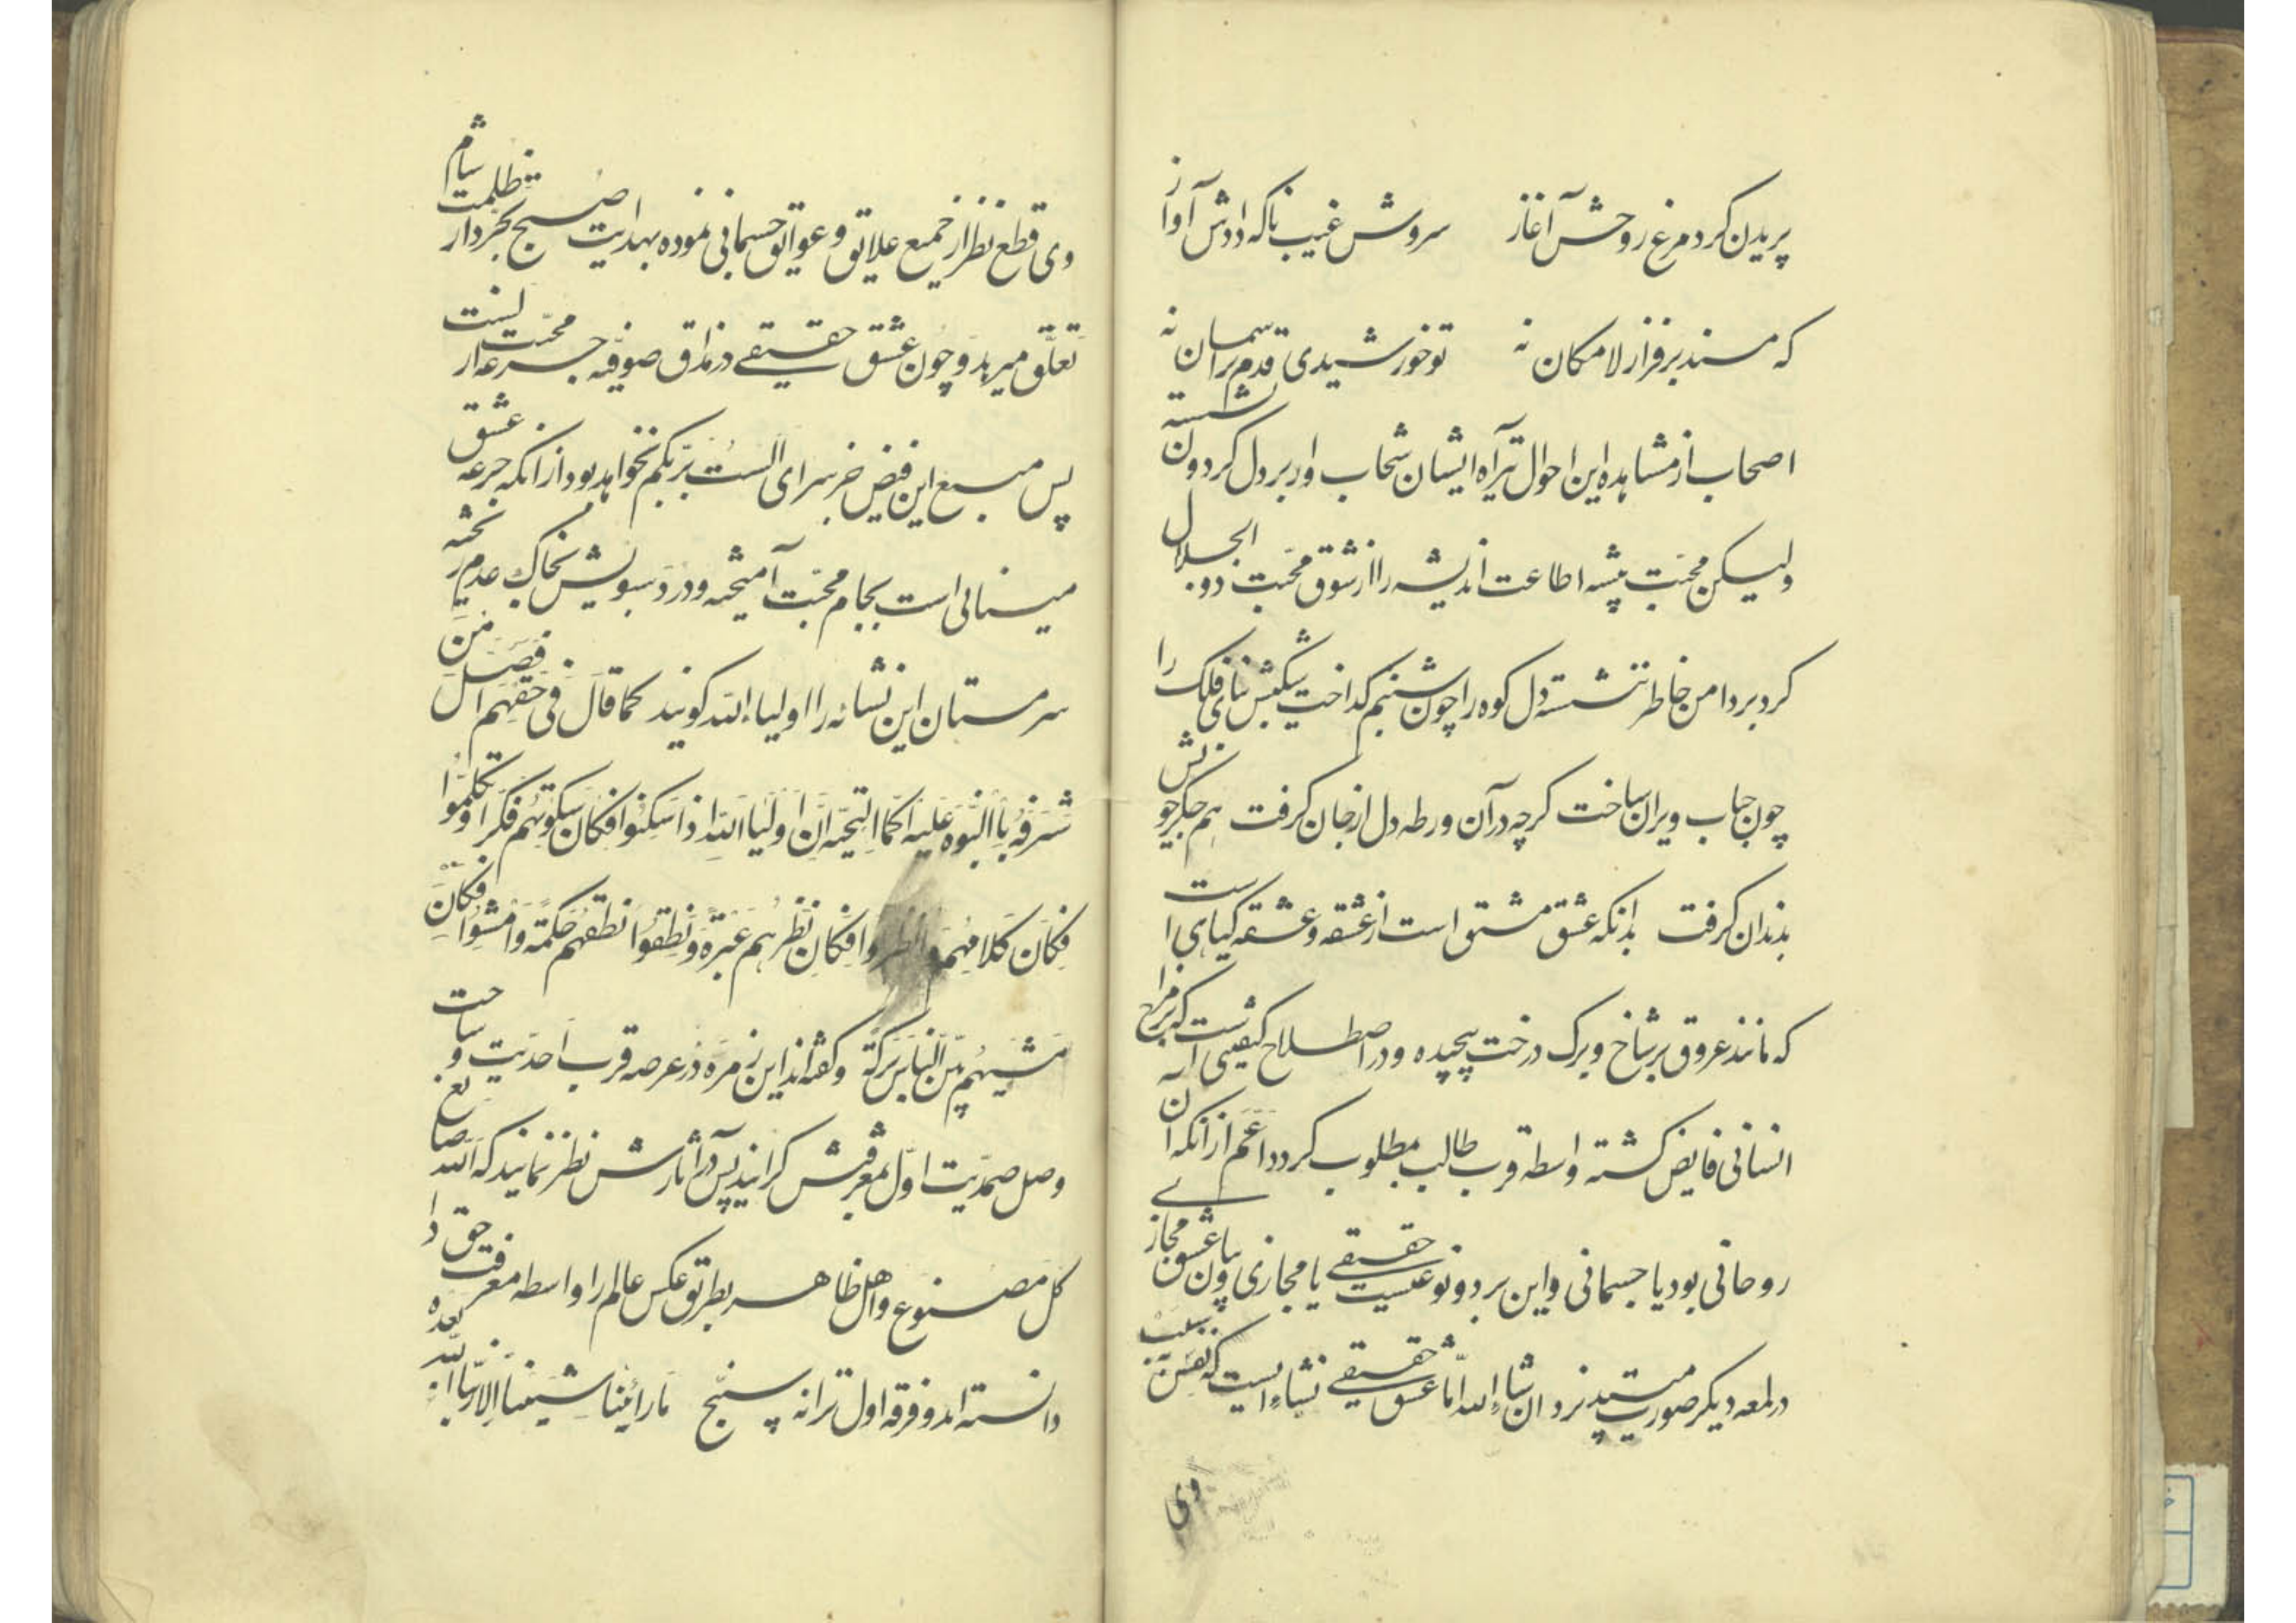 پریدن کرد مرغ روحش آغاز سروش غیب ناکه دادش آواز
که مسند بر فراز لامکان نه تو خورشیدی قدم بر آسمان نه
اصحاب از مشاهده این احوال تیر آه ایشان سحاب اور بر دل کردون نشسته
ولیکن محبت پیشه اطاعت اندیشه را از شوق محبت ذو الجلال
کرد بر دامن خاطر ننشسته دل کوه را چون شبنم کداخت بنای فلک را
چون حباب ویران ساخت کرچه در آن ورطه دل از جان کرفت هم جکر جو نش
بدندان کرفت بدانکه عشق مشتق است از عشقه و عشقه کیاهی است
که مانند عروق بر شاخ و برک درخت پیچیده و در اصطلاح کیفیتی است که بر مزاج
انسانی فایض کشته واسطه قرب طالب بمطلوب کردد اعم از انکه آن
روحانی بود یا جسمانی و این بر دو نوعیست حقیقے یا مجازی و چون عشق مجازے
در لمعه دیکر صورت پذیرد ان شاء الله اما عشق حقیقے نشاءایست که نفس بسبب
وی
وی قطع نظر از جمیع علایق و عوایق جسمانی نموده بهدایت صبح تجرد از ظلمت شام
تعلق میرهد و چون عشق حقیقے در مذاق صوفیه جرعه از محبت لیست
پس منبع این فیض جز سرای الست بربکم نخواهد بود از انکه جرعه عشق
مینائی است بجام محبت آمیخته و درد سبویش بخاک عدم ریخته
سرمستان این نشانه را اولیاء الله کویند کما قال فی حقهم افضل من
شرفه باالنبوه علیه اکما التحیه ان اولیا الله اذا سکنوا فکان سکوتهم فکرا و تکلموا
فکان کلامهم وانظروا فکان نظرهم عبرة و نطقوا نطقهم حکمة و امشوا فکان
مشیهم بین الناس برکة و کفته اند این زمره در عرصه قرب احدیت و ساحت
وصل صمدیت اول بمعرفتش کرایند پس در آثارش نظر نمایند که الله صانع
کل مصنوع و اهل ظاهر بطریق عکس عالم را واسطه معرفت حق
دانسته اند و فرقه اول ترانه سنج ما رائینا شیئنا الا رینا الله بعده